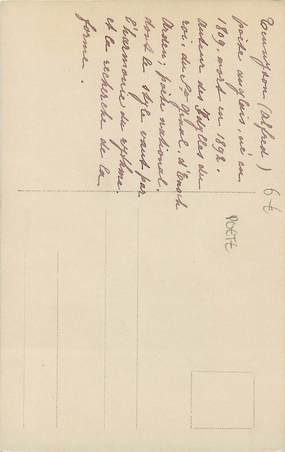 Tennyson (Alfred)
poète anglais, né en
1809, mort en 1892.
Auteur des Idylles du
roi, du St Graal, d'Enoch
Arden; poète national
dont le style vaut par
l'harmonie du rythme
et la recherche de la
forme.
6 €
POETE